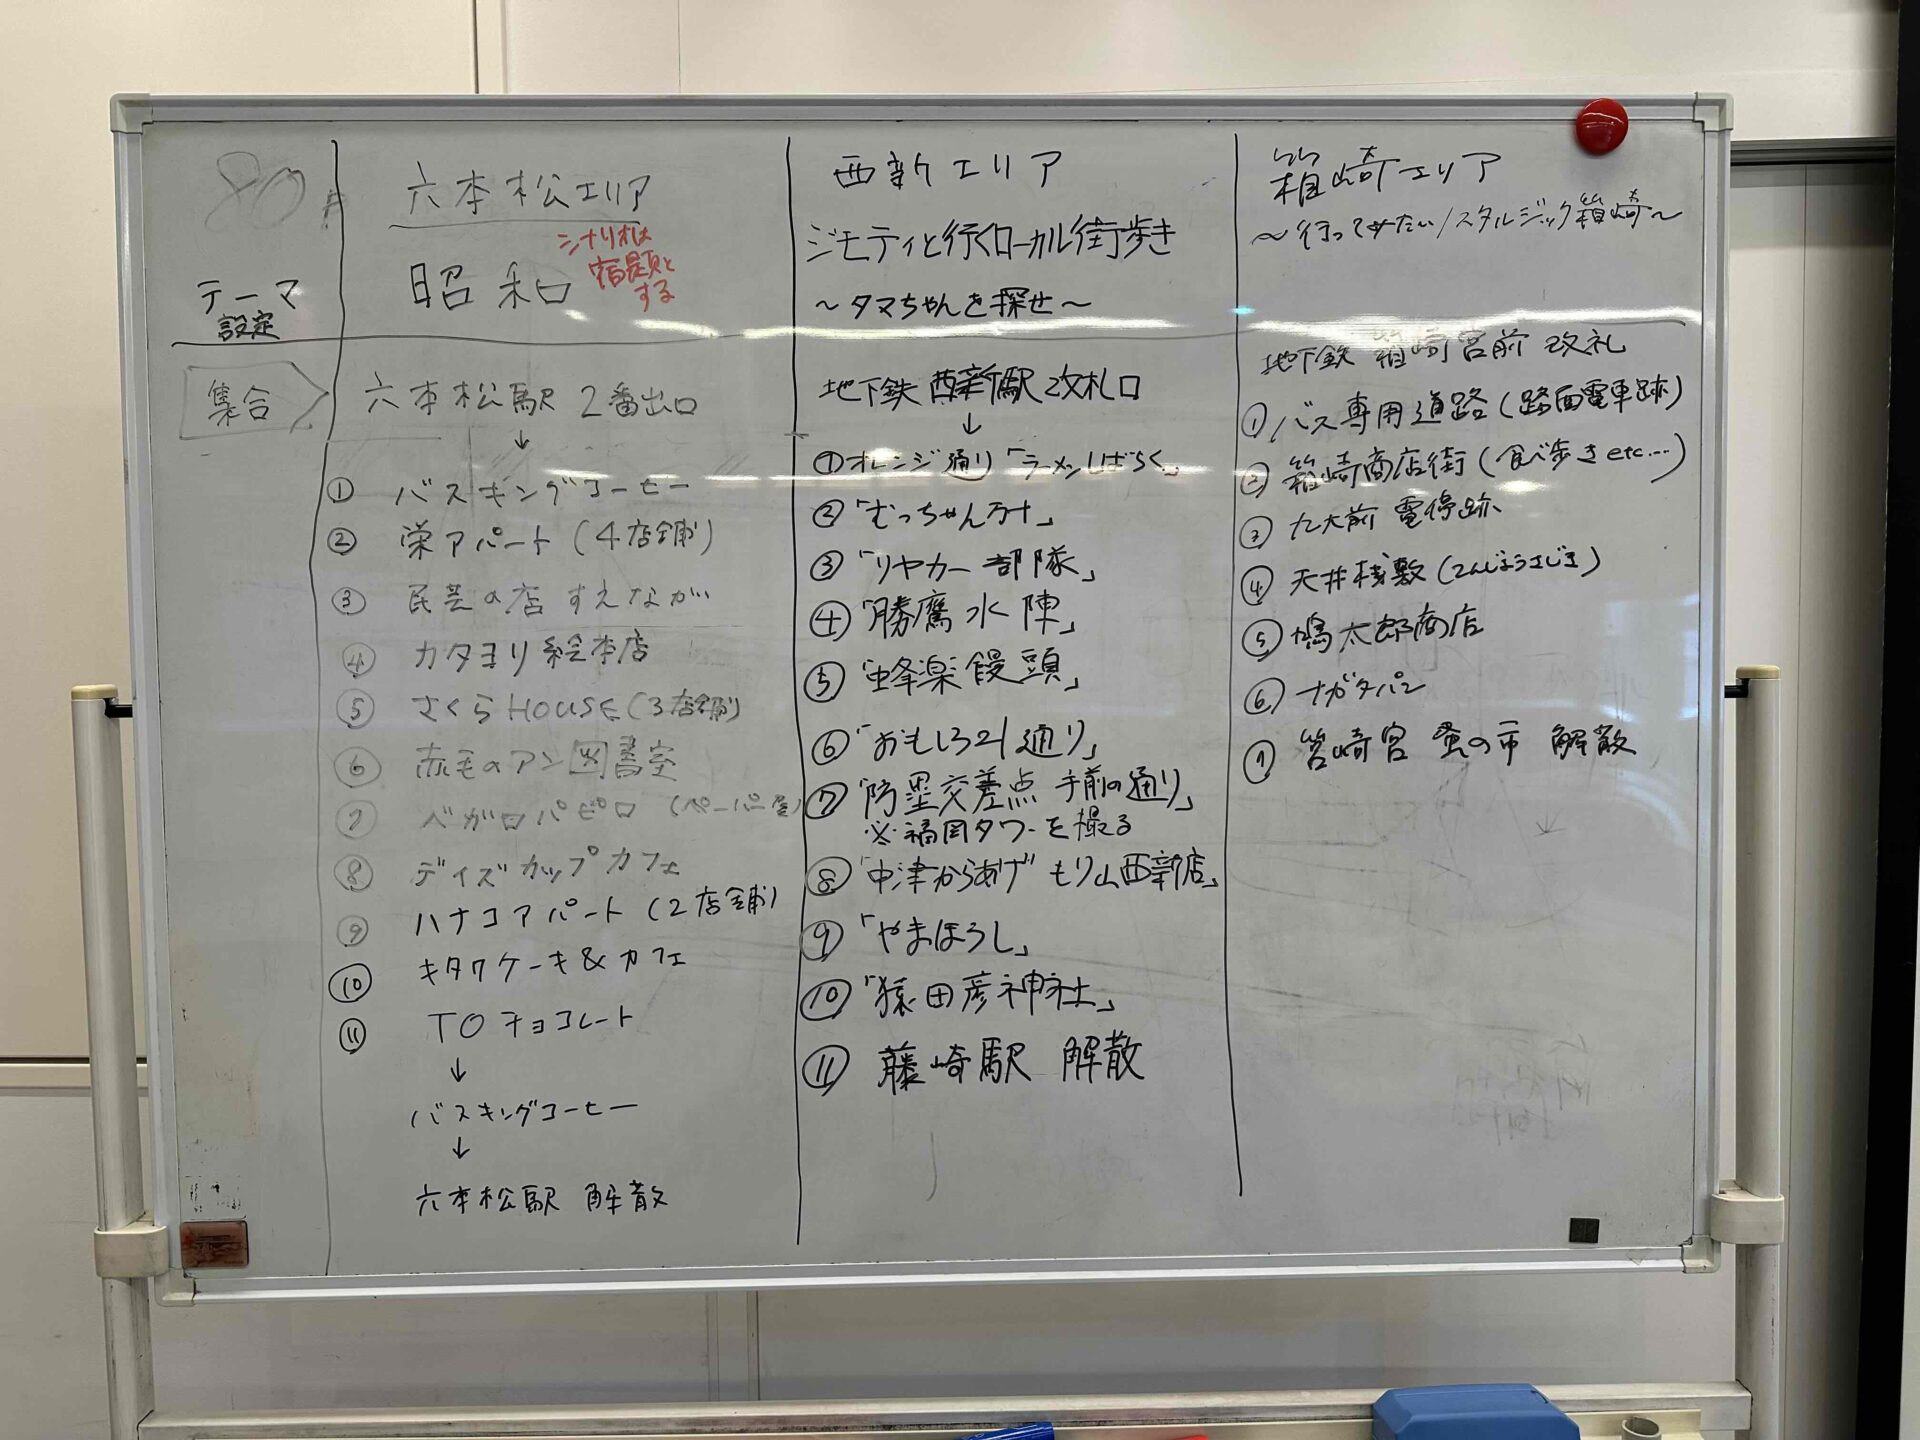 80
テーマ
設定
集合
六本松エリア
昭和
シナリオは
宿題と
する
六本松駅 2番出口
↓
① バスキングコーヒー
② 栄アパート (4店舗)
③ 民芸の店 すえなが
④ カタヨリ絵本店
⑤ さくらHOUSE (3店舗)
⑥ 赤毛のアン図書室
⑦ ベガロパピロ (ペーパー屋)
⑧ デイズカップカフェ
⑨ ハナコアパート (2店舗)
⑩ キタワケーキ&カフェ
⑪ TOチョコレート
↓
バスキングコーヒー
↓
六本松駅 解散
西新エリア
ジモティと行くローカル街歩き
~タマちゃんを探せ~
地下鉄 西新駅 改札口
↓
① オレンジ通り「ラーメンしばらく」
② 「むっちゃん万十」
③ 「リヤカー部隊」
④ 「勝鷹水陣」
⑤ 「蜂楽饅頭」
⑥ 「おもしろ21通り」
⑦ 「防塁交差点 手前の通り」
※福岡タワーを撮る
⑧ 「中津からあげ もり山西新店」
⑨ 「やまぼうし」
⑩ 「猿田彦神社」
⑪ 藤崎駅 解散
箱崎エリア
~行ってみたいノスタルジック箱崎~
地下鉄 箱崎宮前 改札
① バス専用道路 (路面電車跡)
② 箱崎商店街 (食べ歩きetc...)
③ 九大前 電停跡
④ 天井桟敷 (てんじょうさじき)
⑤ 鳩太郎商店
⑥ ナガタパン
⑦ 筥崎宮 蚤の市 解散